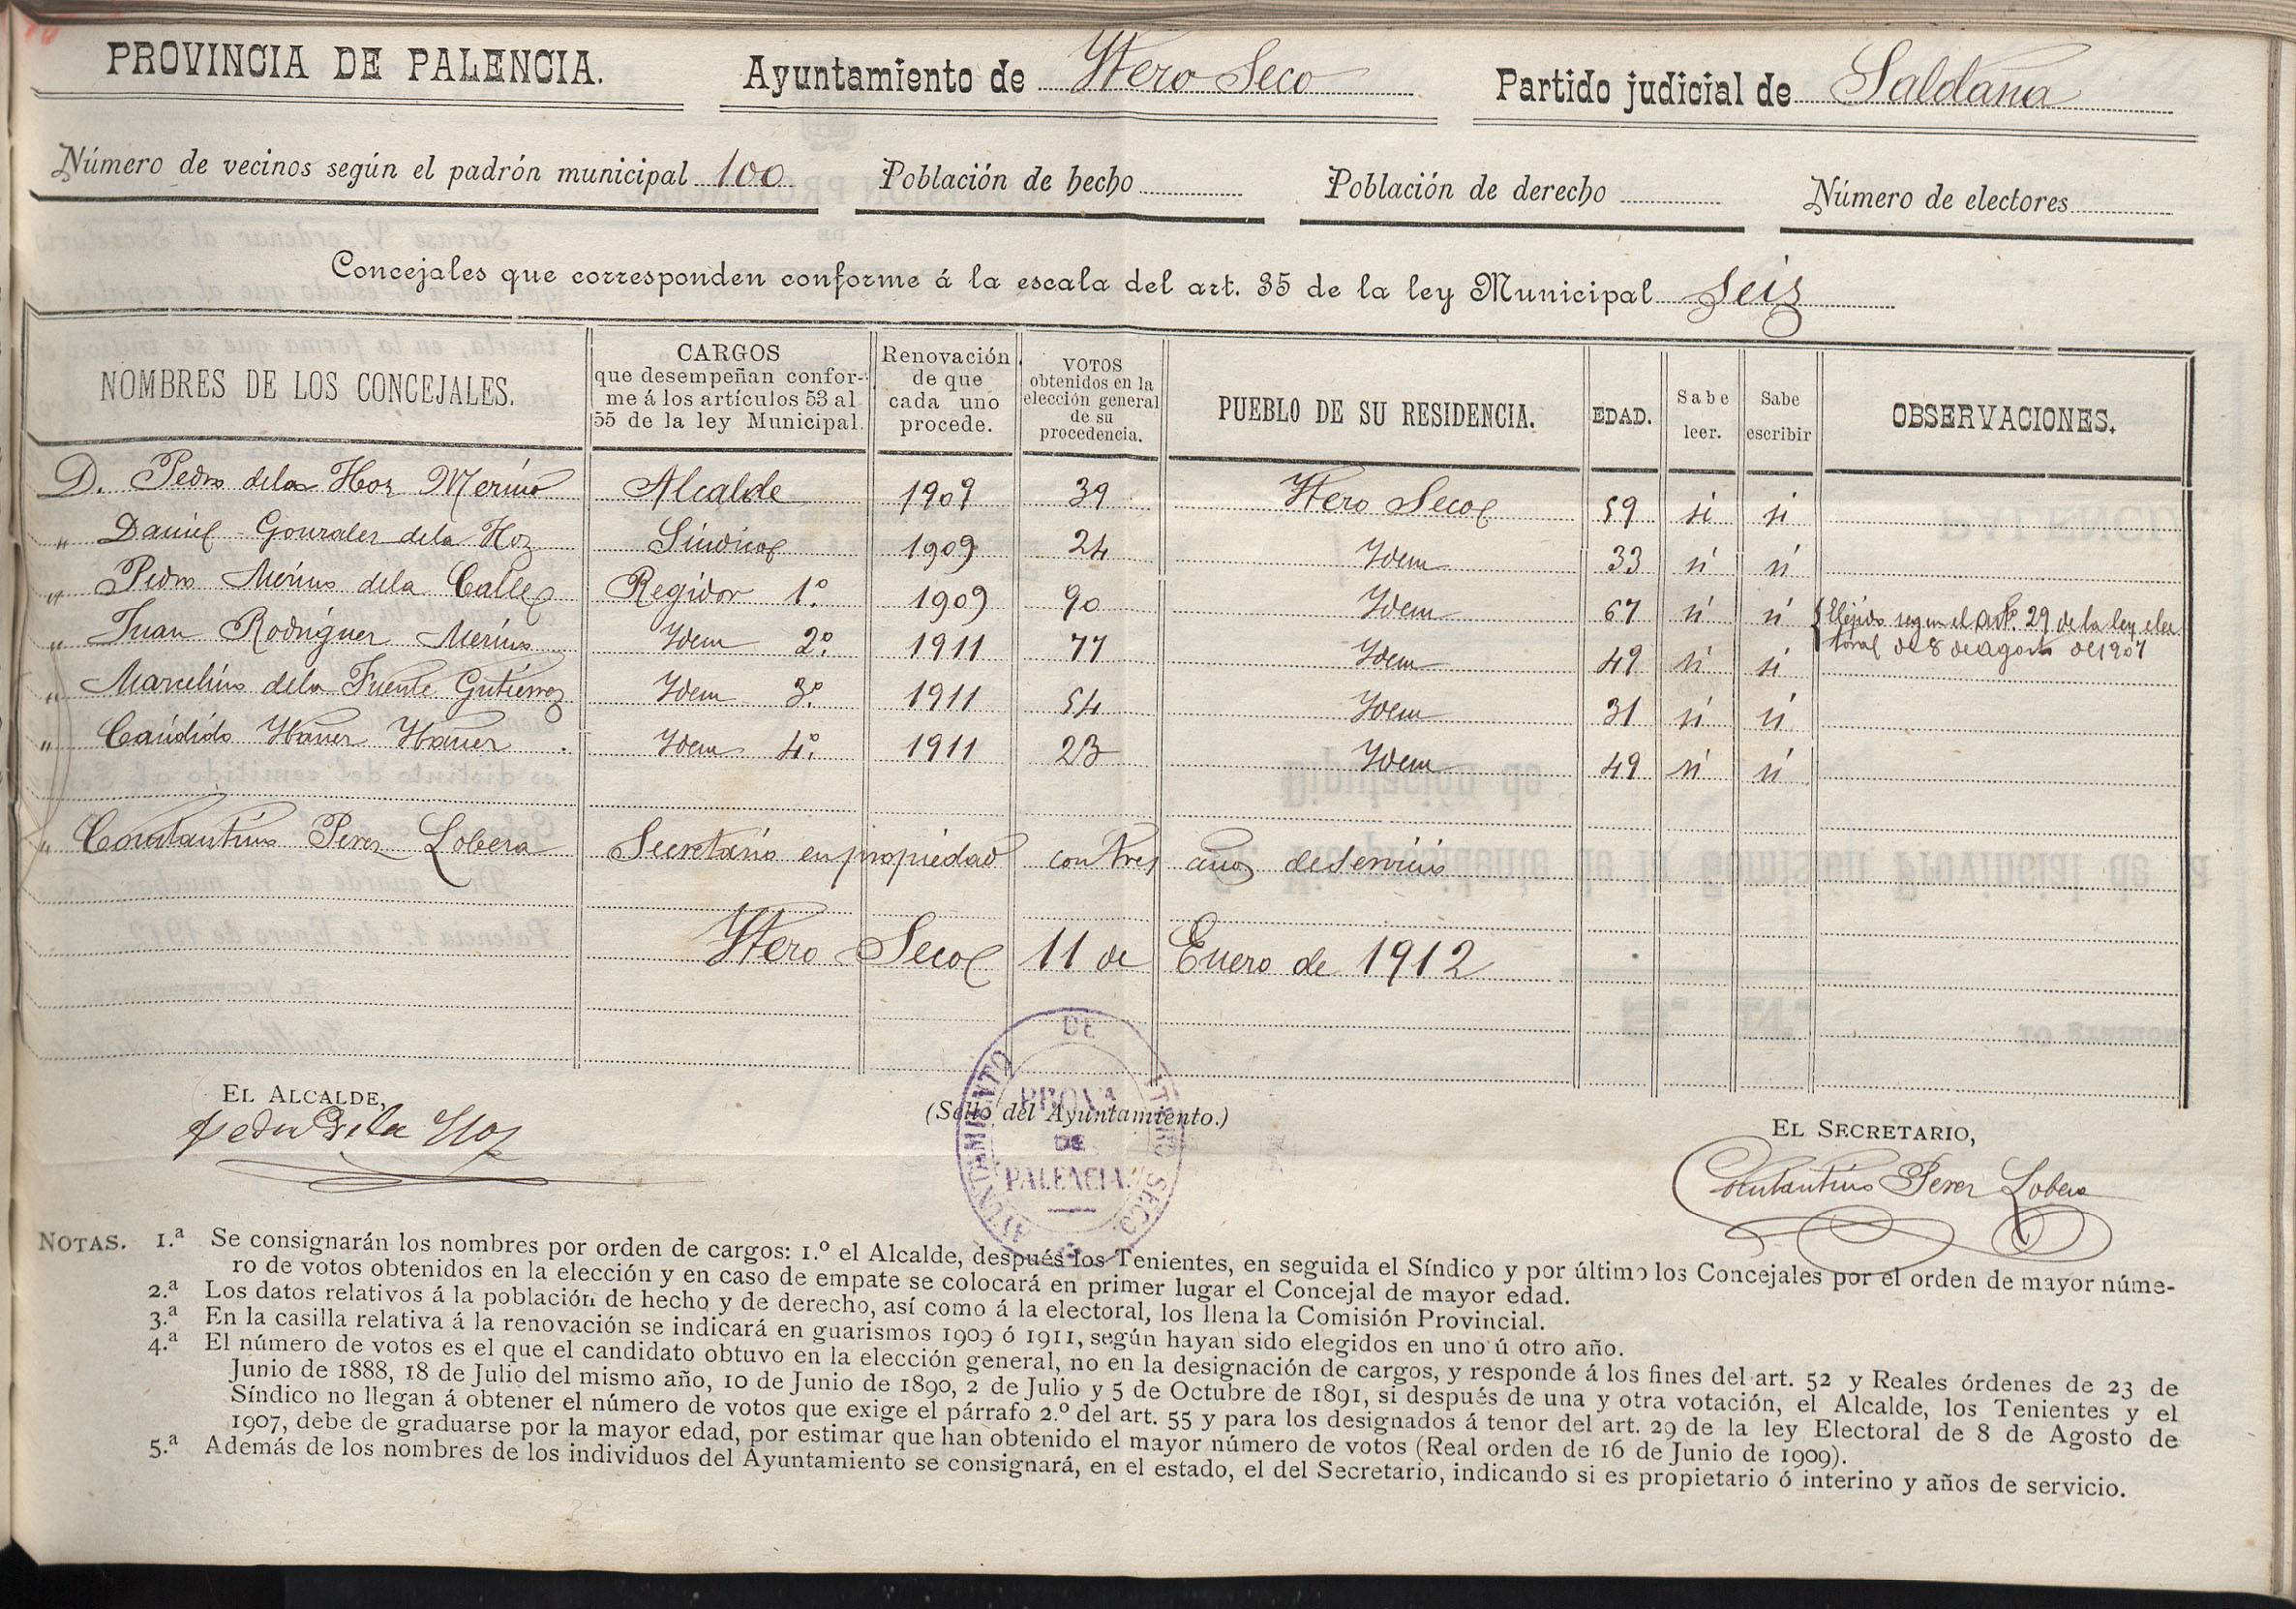 PROVINCIA DE PALENCIA. Ayuntamiento de Ytero Seco Partido judicial de Saldaña
Número de vecinos según el padrón municipal 100 Población de hecho Población de derecho Número de electores
Concejales que corresponden conforme á la escala del art. 35 de la ley Municipal Seis
NOMBRES DE LOS CONCEJALES. CARGOS que desempeñan confor- me á los artículos 53 al 55 de la ley Municipal. Renovación de que cada uno procede. VOTOS obtenidos en la elección general de su procedencia. PUEBLO DE SU RESIDENCIA. EDAD. Sabe leer. Sabe escribir OBSERVACIONES.
D. Pedro dela Hoz Merino Alcalde 1909 39 Ytero Seco 59 si si
" Daniel Gonzalez dela Hoz Sindico 1909 24 Ydem 33 si si
" Pedro Merino dela Calle Regidor 1º. 1909 90 Ydem 67 si si Elejido segun el Artº. 29 de la ley elec
toral de 8 de agosto de 1907
" Juan Rodriguez Merino Ydem 2º. 1911 77 Ydem 49 si si
" Marcelino dela Fuente Gutierrez Ydem 3º. 1911 54 Ydem 31 si si
" Cándido Ybañez Ybañez Ydem 4º. 1911 23 Ydem 49 si si
" Constantino Perez Lobera Secretario en propiedad con tres años de servicio
Ytero Seco 11 de Enero de 1912
EL ALCALDE,
Pedro Dela Hoz
(Sello del Ayuntamiento.)
AYUNTAMIENTO DE ITERO SECO.
PROVª DE PALENCIA.
EL SECRETARIO,
Constantino Perez Lobera
NOTAS. 1.ª Se consignarán los nombres por orden de cargos: 1.º el Alcalde, después los Tenientes, en seguida el Síndico y por último los Concejales por el orden de mayor núme-
ro de votos obtenidos en la elección y en caso de empate se colocará en primer lugar el Concejal de mayor edad.
2.ª Los datos relativos á la población de hecho y de derecho, así como á la electoral, los llena la Comisión Provincial.
3.ª En la casilla relativa á la renovación se indicará en guarismos 1909 ó 1911, según hayan sido elegidos en uno ú otro año.
4.ª El número de votos es el que el candidato obtuvo en la elección general, no en la designación de cargos, y responde á los fines del art. 52 y Reales órdenes de 23 de
Junio de 1888, 18 de Julio del mismo año, 10 de Junio de 1890, 2 de Julio y 5 de Octubre de 1891, si después de una y otra votación, el Alcalde, los Tenientes y el
Síndico no llegan á obtener el número de votos que exige el párrafo 2.º del art. 55 y para los designados á tenor del art. 29 de la ley Electoral de 8 de Agosto de
1907, debe de graduarse por la mayor edad, por estimar que han obtenido el mayor número de votos (Real orden de 16 de Junio de 1909).
5.ª Además de los nombres de los individuos del Ayuntamiento se consignará, en el estado, el del Secretario, indicando si es propietario ó interino y años de servicio.